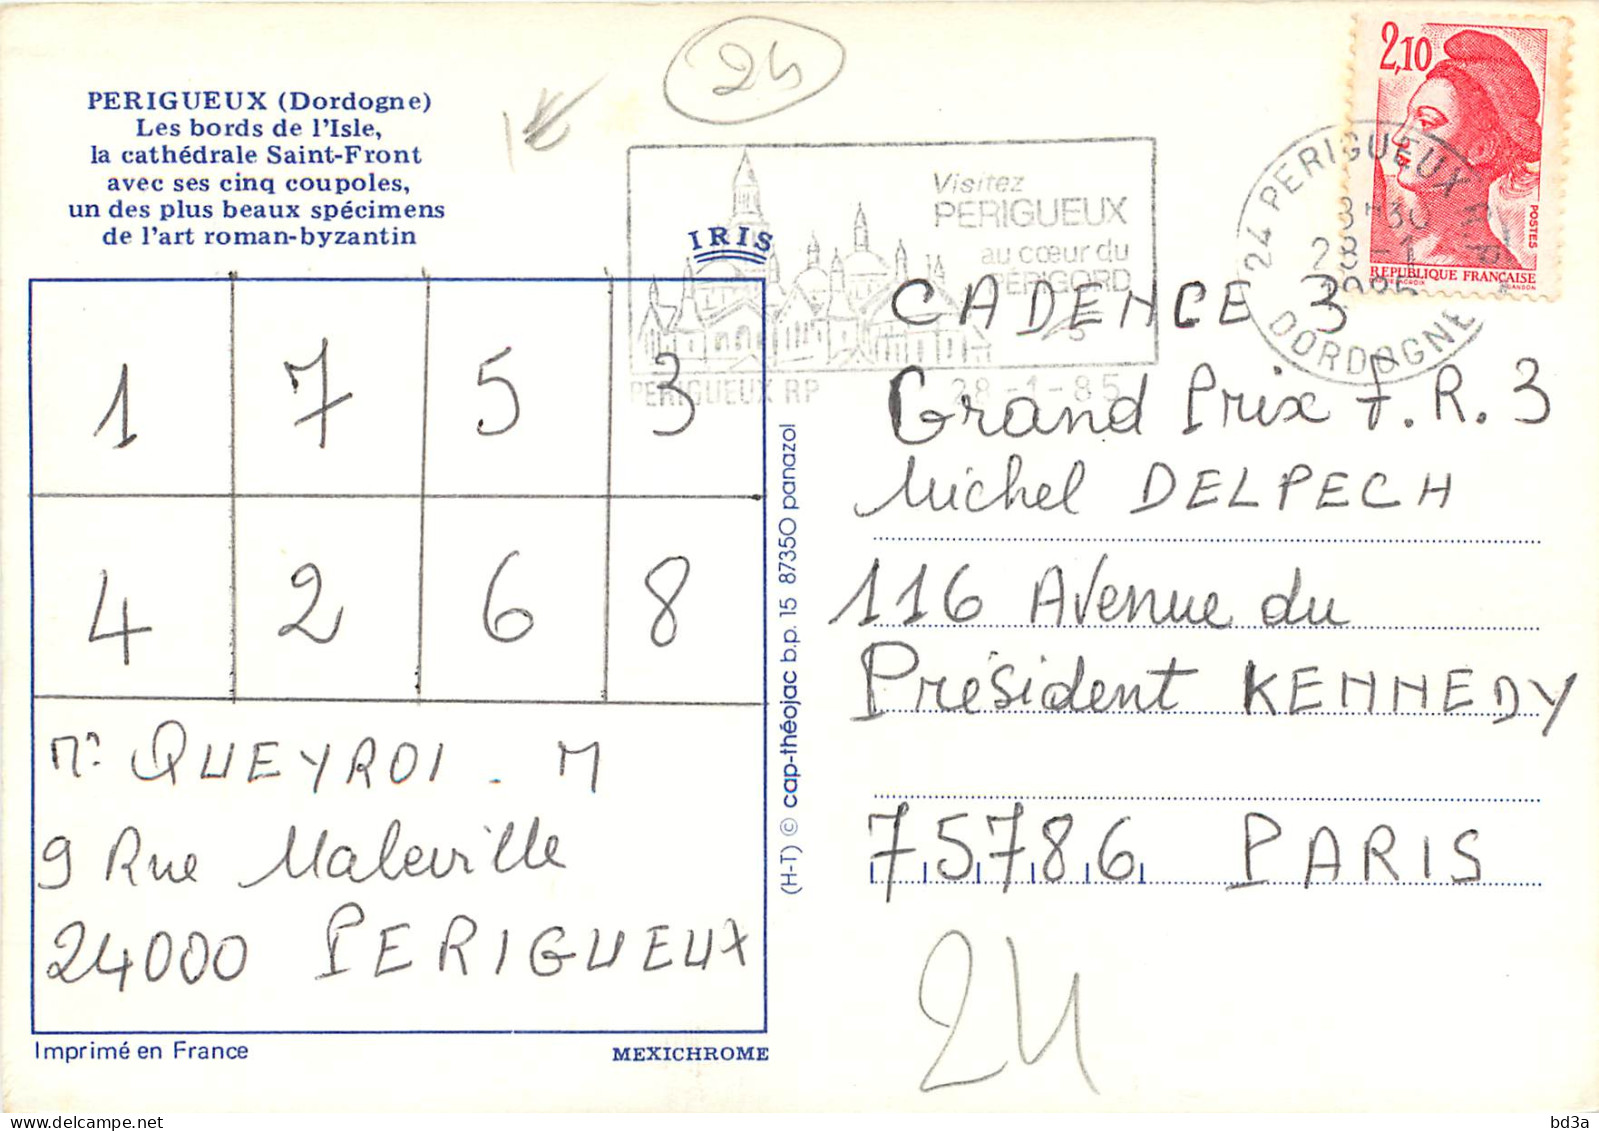 PERIGUEUX (Dordogne)
Les bords de l'Isle,
la cathédrale Saint-Front
avec ses cinq coupoles,
un des plus beaux spécimens
de l'art roman-byzantin
24
1€
IRIS
Visitez
PERIGUEUX
au cœur du
PÉRIGORD
PERIGUEUX RP
28-1-85
24 PERIGUEUX R.P.
DORDOGNE
28-1
2,10
POSTES
REPUBLIQUE FRANÇAISE
1 7 5 3
4 2 6 8
Mr QUEYROI . M
9 Rue Maleville
24000 PERIGUEUX
Imprimé en France
MEXICHROME
(H-T) © cap-théojac b.p. 15 87350 panazol
CADENCE 3
Grand Prix F.R.3
Michel DELPECH
116 Avenue du
Président KENNEDY
75786 PARIS
24
bd3a